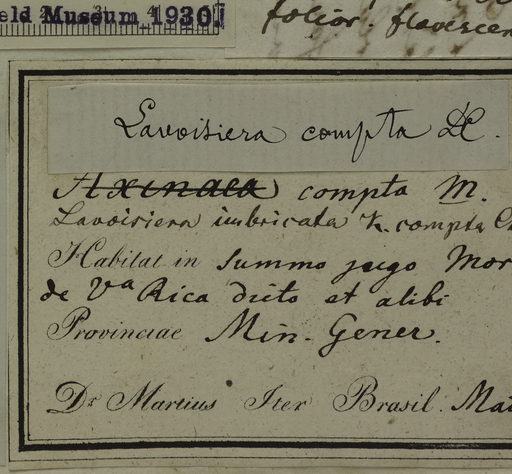 eld Museum 1930
folior. flavescen
Lavoisiera compta DC.
Axinaea compta M.
Lavoisiera imbricata v. compta C
Habitat in summo jugo Mor
de Va Rica dicto et alibi
Provinciae Min. Gener.
Dr Martius Iter Brasil. Mai